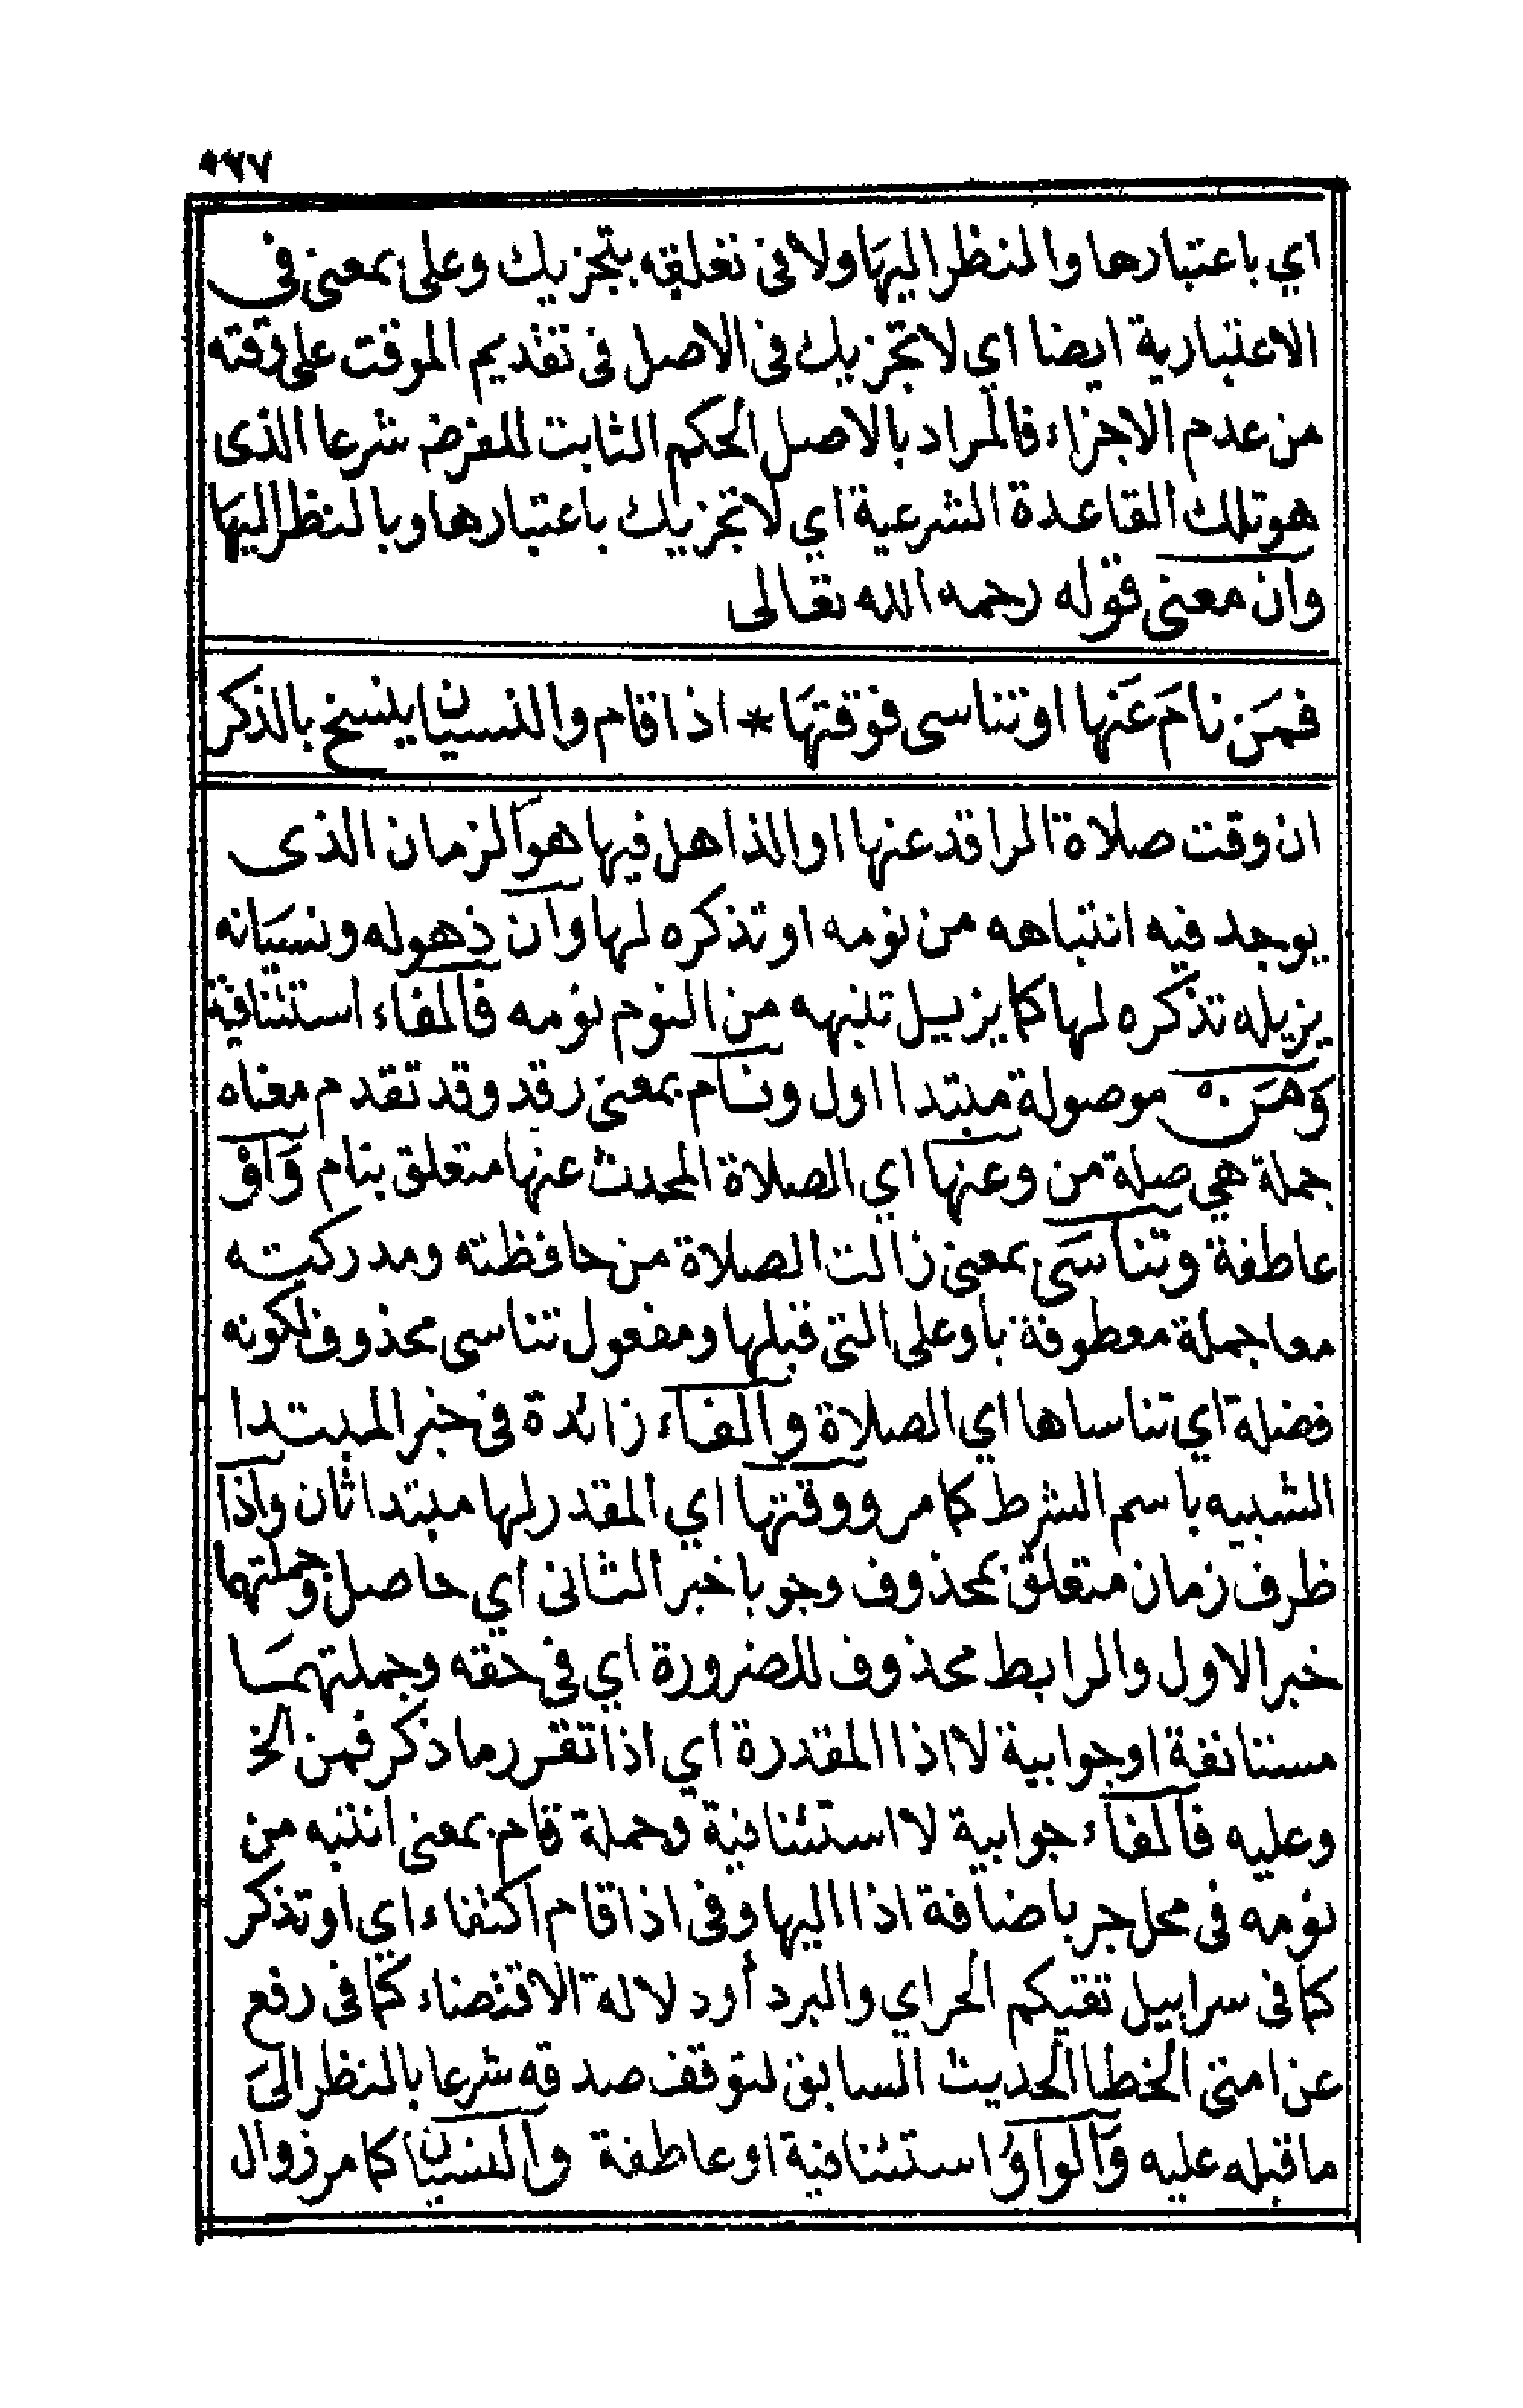 ٥٦٧
اي باعتبارها والنظر اليها ولا في تعلقه بتجزيك وعلى بمعنى في
الاعتبارية ايضا اي لا تجزيك في الاصل في تقديم الموقت على وقته
من عدم الاجزاء فالمراد بالاصل الحكم الثابت للفرض شرعا الذى
هو تلك القاعدة الشرعية اي لا تجزيك باعتبارها وبالنظر اليها
وان معنى قوله رحمه الله تعالى
فمَن نامَ عَنها او تناسى فوقتهَا * اذا قام والنسيان ينسخ بالذكر
ان وقت صلاة الراقد عنها او الذاهل فيها هو الزمان الذى
يوجد فيه انتباهه من نومه او تذكره لها وان ذهوله ونسيَانه
يزيله تذكره لها كما يزيل تنبهه من النوم نومه فالفاء استئنافية
وَمَن موصولة مبتدا اول ونام بمعنى رقد وقد تقدم معناه
جملة هي صلة من وعنها اي الصلاة المحدث عنها متعلق بنام وَاوْ
عاطفة وتناسَى بمعنى زالت الصلاة من حافظته ومدركته
معا جملة معطوفة باو على التى قبلها ومفعول تناسى محذوف لكونه
فضلة اي تناساها اي الصلاة والفاء زائدة في خبر المبتدا
الشبيه باسم الشرط كما مر ووقتها اي المقدر لها مبتدا ثان واذا
ظرف زمان متعلق بمحذوف وجوبا خبر الثانى اي حاصل وجملتها
خبر الاول والرابط محذوف للضرورة اي في حقه وجملتهمَا
مستانفة او جوابية لاذا المقدرة اي اذا تقرر ما ذكر فمن الخ
وعليه فالفاء جوابية لا استئنافية وجملة قام بمعنى انتبه من
نومه في محل جر باضافة اذا اليها وفى اذا قام اكتفاء اي او تذكر
كما في سرابيل تقيكم الحر اي والبرد أو دلالة الاقتضاء كما في رفع
عن امتى الخطا الحديث السابق لتوقف صدقه شرعا بالنظر الىَ
ما قبله عليه وَالواوُ استئنافية او عاطفة والنسيان كما مر زوال